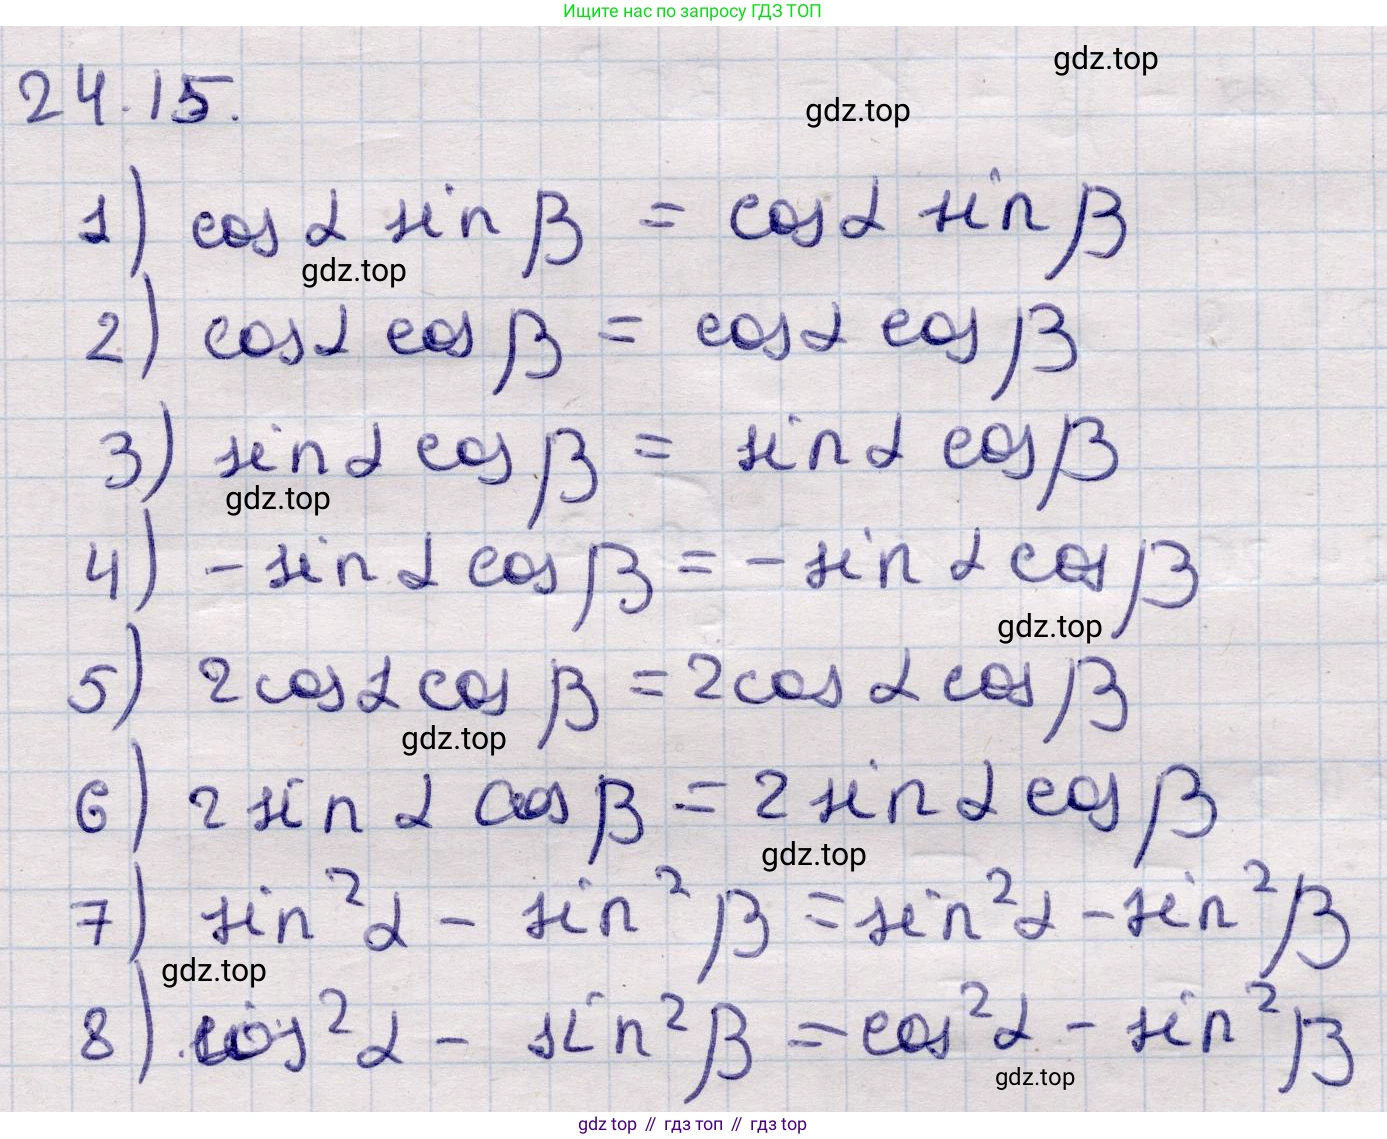 Ищите нас по запросу ГДЗ ТОП
gdz.top
24.15.
gdz.top
1) cos α sin β = cos α sin β
gdz.top
2) cos α cos β = cos α cos β
3) sin α cos β = sin α cos β
gdz.top
4) - sin α cos β = - sin α cos β
gdz.top
5) 2 cos α cos β = 2 cos α cos β
gdz.top
6) 2 sin α cos β = 2 sin α cos β
gdz.top
7) sin² α - sin² β = sin² α - sin² β
gdz.top
8) cos² α - sin² β = cos² α - sin² β
gdz.top
gdz.top // гдз топ // гдз top